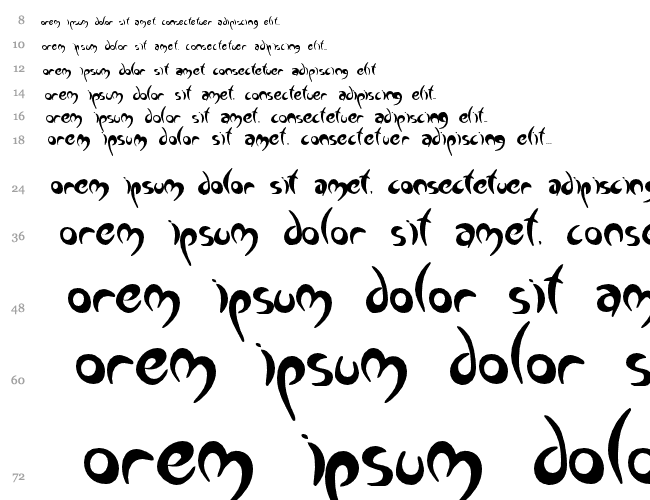 8 orem ipsum dolor sit amet. consectetuer adipiscing elit...
10 orem ipsum dolor sit amet. consectetuer adipiscing elit...
12 orem ipsum dolor sit amet consectetuer adipiscing elit
14 orem ipsum dolor sit amet. consectetuer adipiscing elit..
16 orem ipsum dolor sit amet. consectetuer adipiscing elit..
18 orem ipsum dolor sit amet. consectetuer adipiscing elit...
24 orem ipsum dolor sit amet. consectetuer adipiscing
36 orem ipsum dolor sit amet. conse
48 orem ipsum dolor sit am
60 orem ipsum dolor s
72 orem ipsum dolo